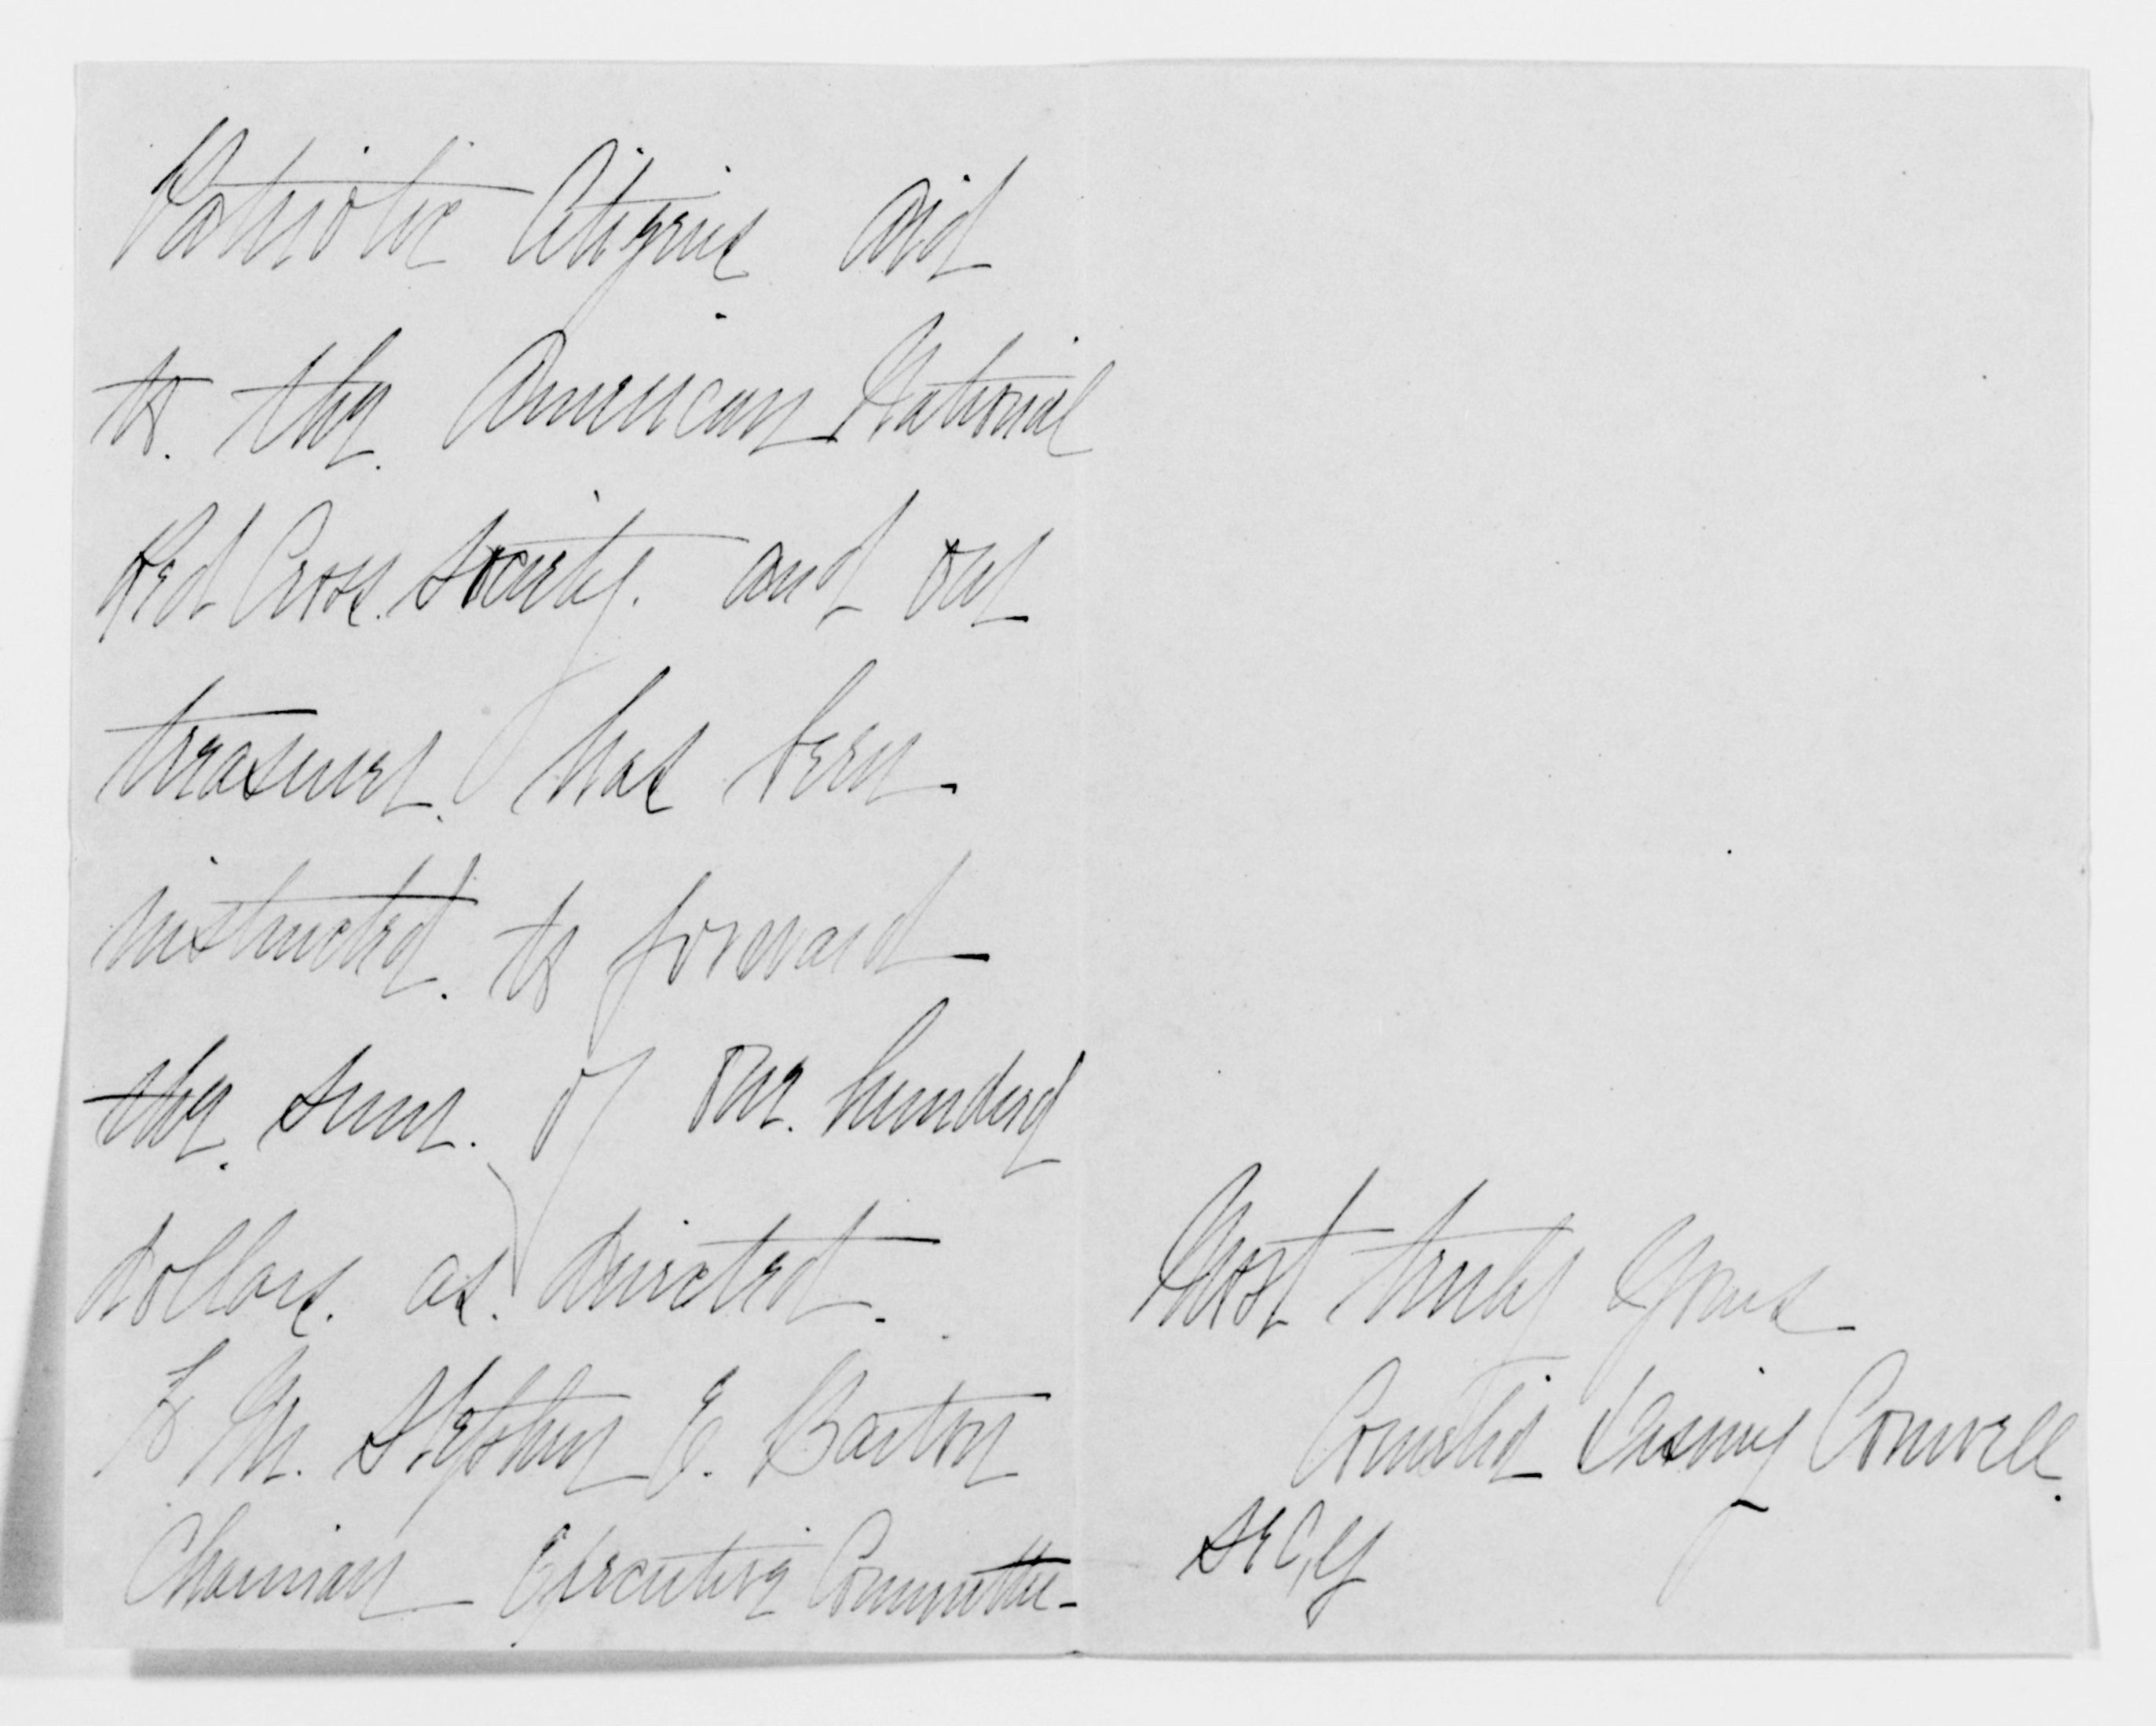 Patriotic Citizens aid
to the American National
Red Cross Society. and our
treasurer has been
instructed to forward
the sum of one hundred
dollars as directed.
to Mr. Stephen E. Barton
Chairman Executive Committee
Most truly yours
Cornelia Conwell.
Sec'y